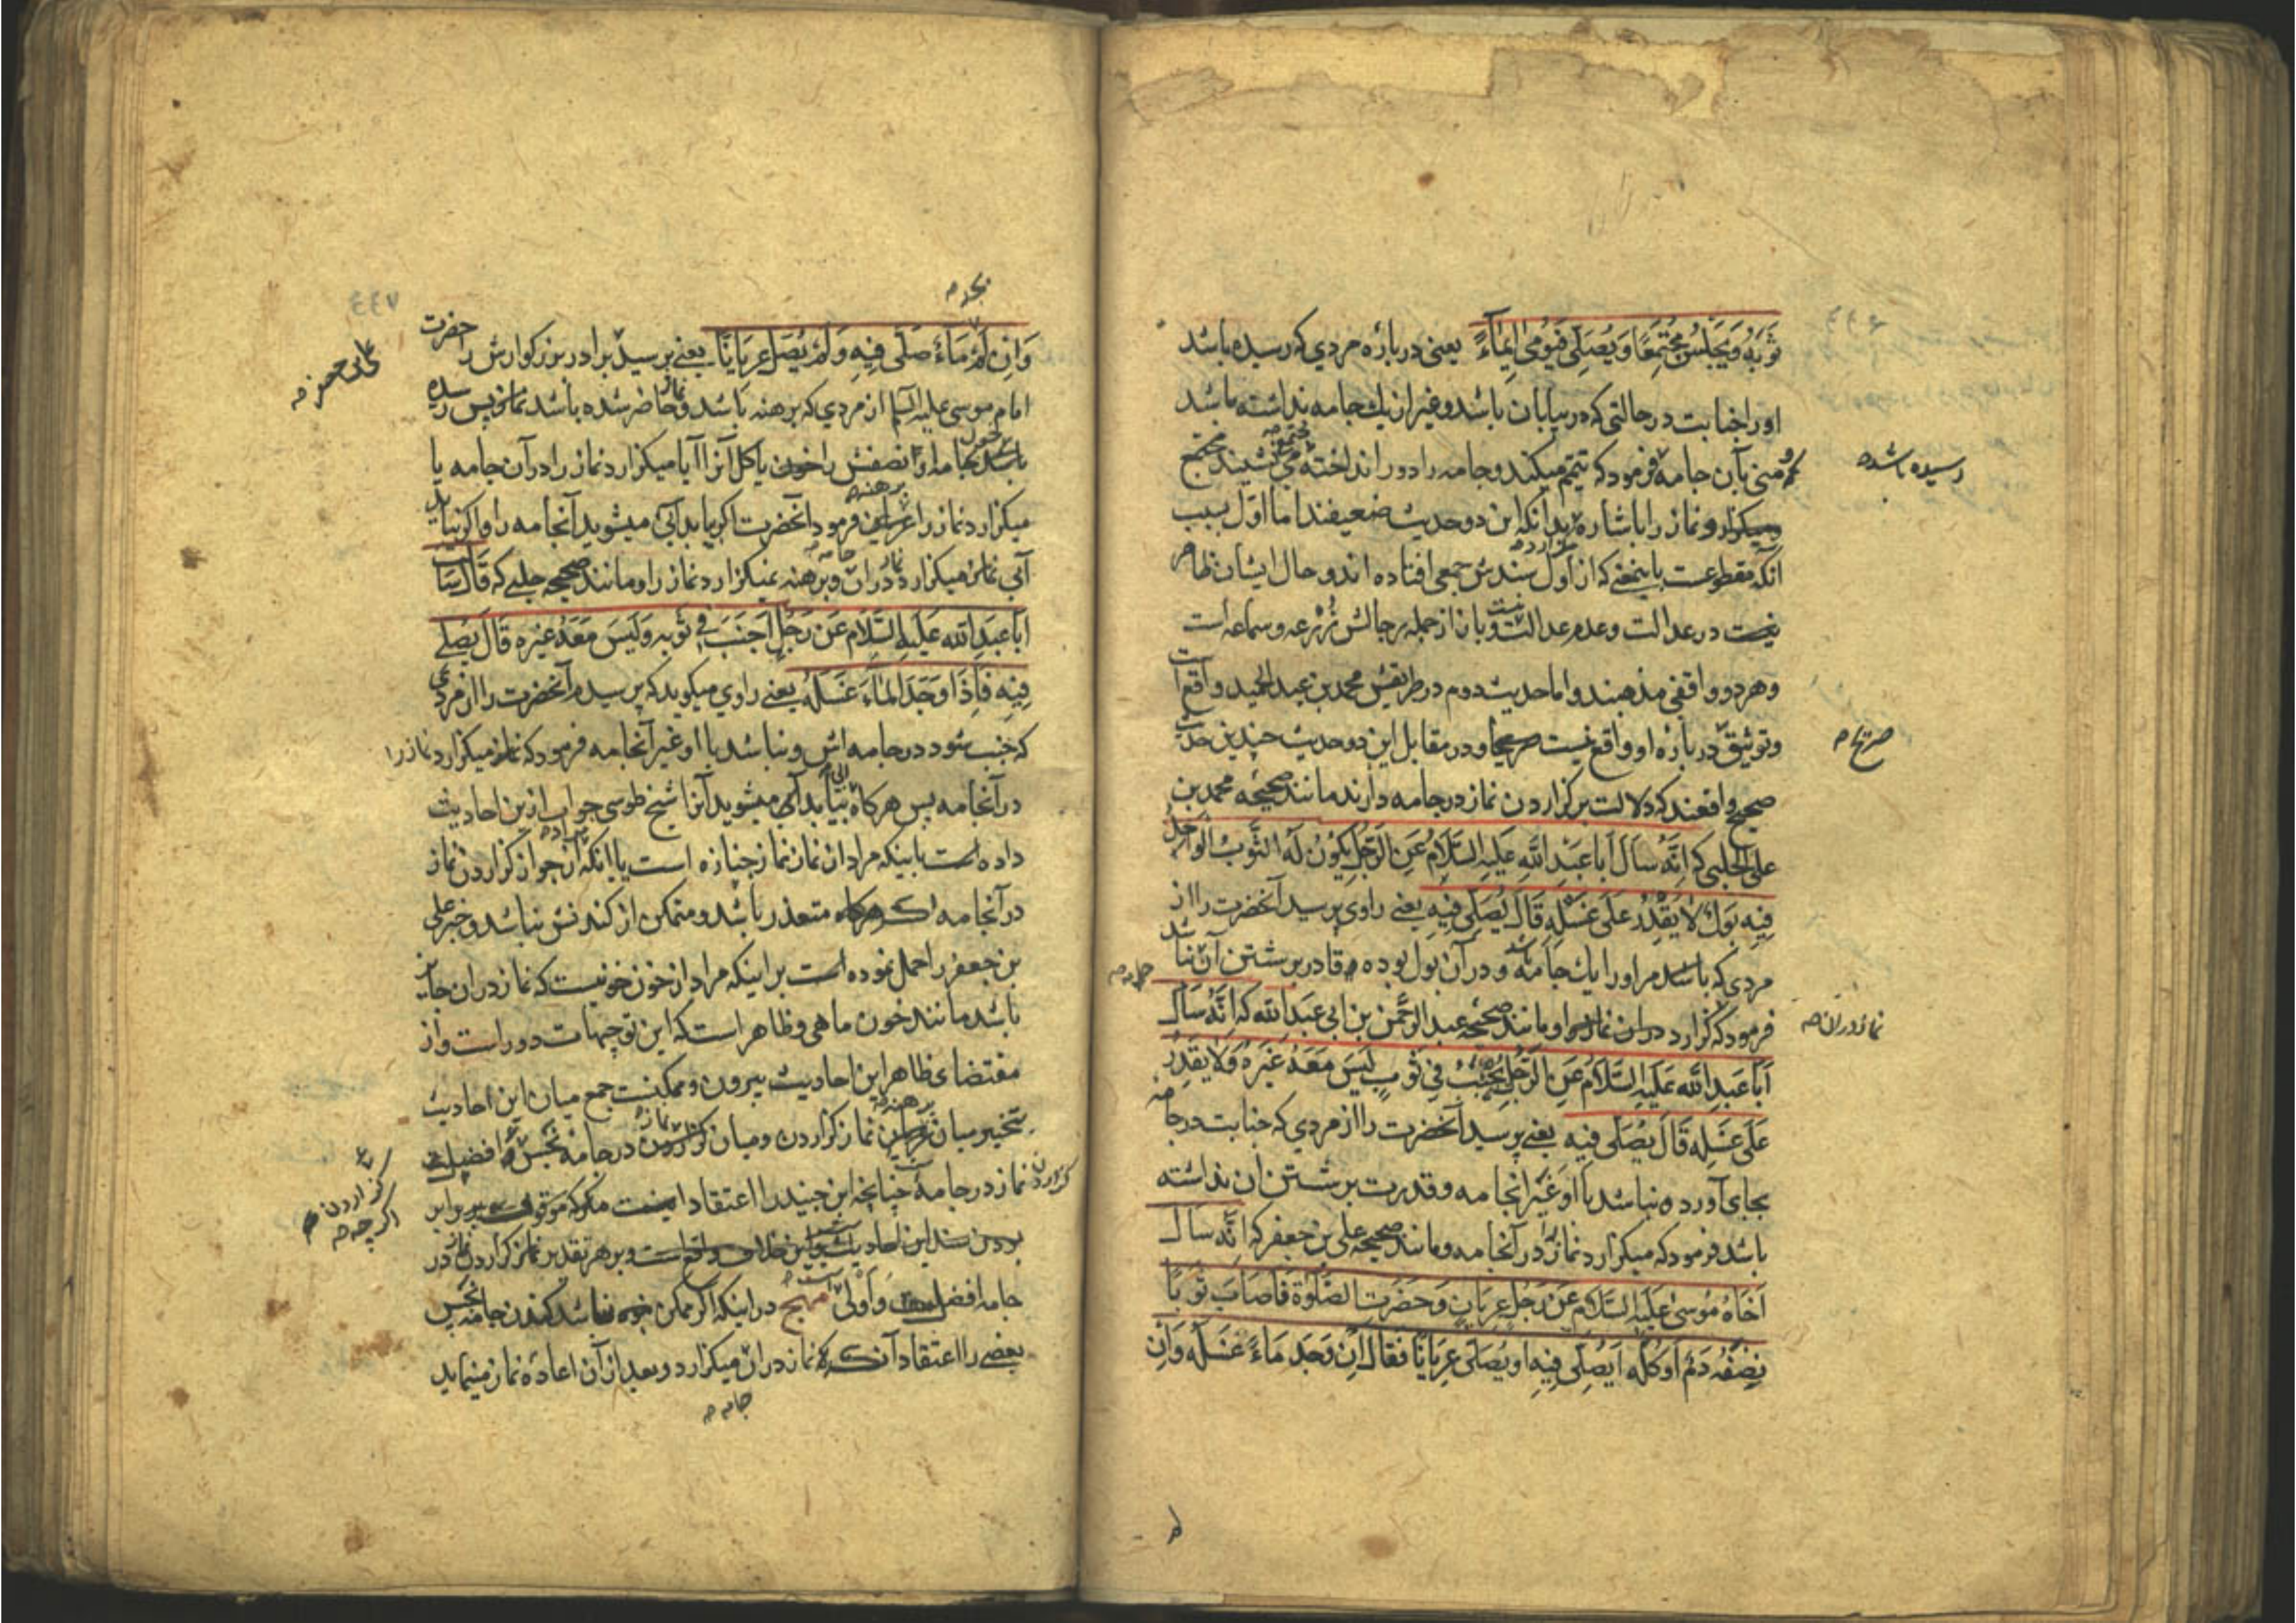 ثَوبَهُ وَ یَجلِسُ مُجتَمِعًا وَ یُصَلِّی فَیُومِی اِیمَآءً یعنی در باره مردی که رسیده باشد
او را جنابت در حالتی که در بیابان باشد و غیر از یك جامه نداشته باشد
منی بآن جامه فرمود که تیمّم میکند و جامه را دور انداخته می نشیند مجتمع
رسیده باشد
میکزارد نماز را باشاره بدانکه این دو حدیث ضعیفند اما اول بسبب
آنکه مقطوعست باینمعنی که از اول سندش جمعی افتاده اند و حال ایشان ظاهر
نیست در عدالت و عدم عدالت و بان از جمله رجالش زرعه و سماعه است
و هر دو واقفی مذهبند و اما حدیث دوم در طریقش محمد بن عبد الحمید واقع است
و توثیق در باره او واقع نیست صریحا و در مقابل این دو حدیث چندین حدیث
صریحا
صحیح واقعند که دلالت بر کزاردن نماز در جامه دارند مانند صحیحه محمد بن
علی الحلبی که اِنَّهُ سَاَلَ اَبا عَبدِ اللّٰه عَلَیهِ السَّلامُ عَنِ الرَّجُلِ یَکُونُ لَهُ الثَّوبُ الواحِدُ
فِیهِ بَولٌ لا یَقدِرُ عَلٰی غَسلِهِ قالَ یُصَلِّی فِیهِ یعنی راوی پرسید آنحضرت را از
مردی که باشد مر او را یك جامه و در آن بول بوده قادر بر شستن آن نباشد
فرمود که کزارد در ان نماز را و مانند صحیحه عبد الرحمن بن ابی عبد اللّٰه که اِنَّهُ سَاَلَ
نماز در ان
اَبا عَبدِ اللّٰه عَلَیهِ السَّلامُ عَنِ الرَّجُلِ یُجنِبُ فِی ثَوبٍ لَیسَ مَعَهُ غَیرُهُ وَلا یَقدِرُ
عَلٰی غَسلِهِ قالَ یُصَلِّی فِیهِ یعنی پرسید آنحضرت را از مردی که جنابت در جامه
بجای آورده نباشد با او غَیر آنجامه و قدرت بر شستن ان نداشته
باشد فرمود که میکزارد نماز در آنجامه و مانند صحیحه علی بن جعفر که اِنَّهُ سَاَلَ
اَخاهُ مُوسٰی عَلَیهِ السَّلام عَن رَجُلٍ عریانٍ وَ حَضَرَتِ الصَّلوٰة فَاَصابَ ثَوبًا
نِصفُهُ دَمٌ اَو کُلُّه اَیُصَلِّی فِیهِ اَو یُصَلِّی عریانًا فَقالَ اِن وَجَدَ ماءً غَسَلَهُ وَاِن
وَاِن لَم ماءً صَلّٰی فِیهِ وَلَم یُصَلِّ عریانًا یعنی پرسید برادر بزرکوارش را حضرت
امام موسی علیه السلام از مردی که برهنه باشد و نماز حاضر شده باشد پس رسیده
باشد بجامه او نصفش را خون یا کل آنرا آیا میکزارد نماز را در آن جامه یا
میکزارد نماز را برهنه فرمود آنحضرت اکر بیابد آبی میشوید آنجامه را و اکر نیابد
آبی نماز میکزارد در ان و برهنه نمیکزارد نماز را و مانند صحیحه حلبی که قالَ سَاَلتُ
اَبا عَبدِ اللّٰه عَلَیهِ السَّلام عَن رَجُلٍ اَجنَبَ فِی ثَوبِه وَلَیسَ مَعَهُ غَیرُه قالَ یُصَلِّی
فِیهِ فَاِذا وَجَدَ الماءَ غَسَلَهُ یعنی راوی میکوید که پرسیدم آنحضرت را از مردی
که جنب شود در جامه اش و نباشد با او غیر آنجامه فرمود که میکزارد نماز را
در آنجامه پس هر کاه بیابد آبی میشوید آنرا شیخ طوسی جواب از این احادیث
داده است باینکه مراد از نماز نماز جنازه است یا اینکه مراد از جواز کزاردن نماز
در آنجامه متعذر باشد و متمکن از کندنش نباشد و خبر علی
بن جعفر را حمل نموده است بر اینکه مراد از خون خونیست که نماز در ان جایز
باشد مانند خون ماهی و ظاهر است که این توجیهات دور است و از
مقتضای ظاهر این احادیث بیرون و ممکنست جمع میان این احادیث
بتخییر میان برهنه نماز کزاردن و میان کزاردن نماز در جامه نجس افضلیت
کزاردن نماز در جامه چنانچه ابن جنید را اعتقاد اینست
کزاردن
اکر چه
بودن سند این احادیث و بر هر تقدیر نماز کزاردن در
جامه افضل است و اولی در اینکه اکر ممکن نباشد کندن جامه نجس
بعضی را اعتقاد آنکه نماز در ان میکزارد و بعد از آن اعاده نماز مینماید
جامه